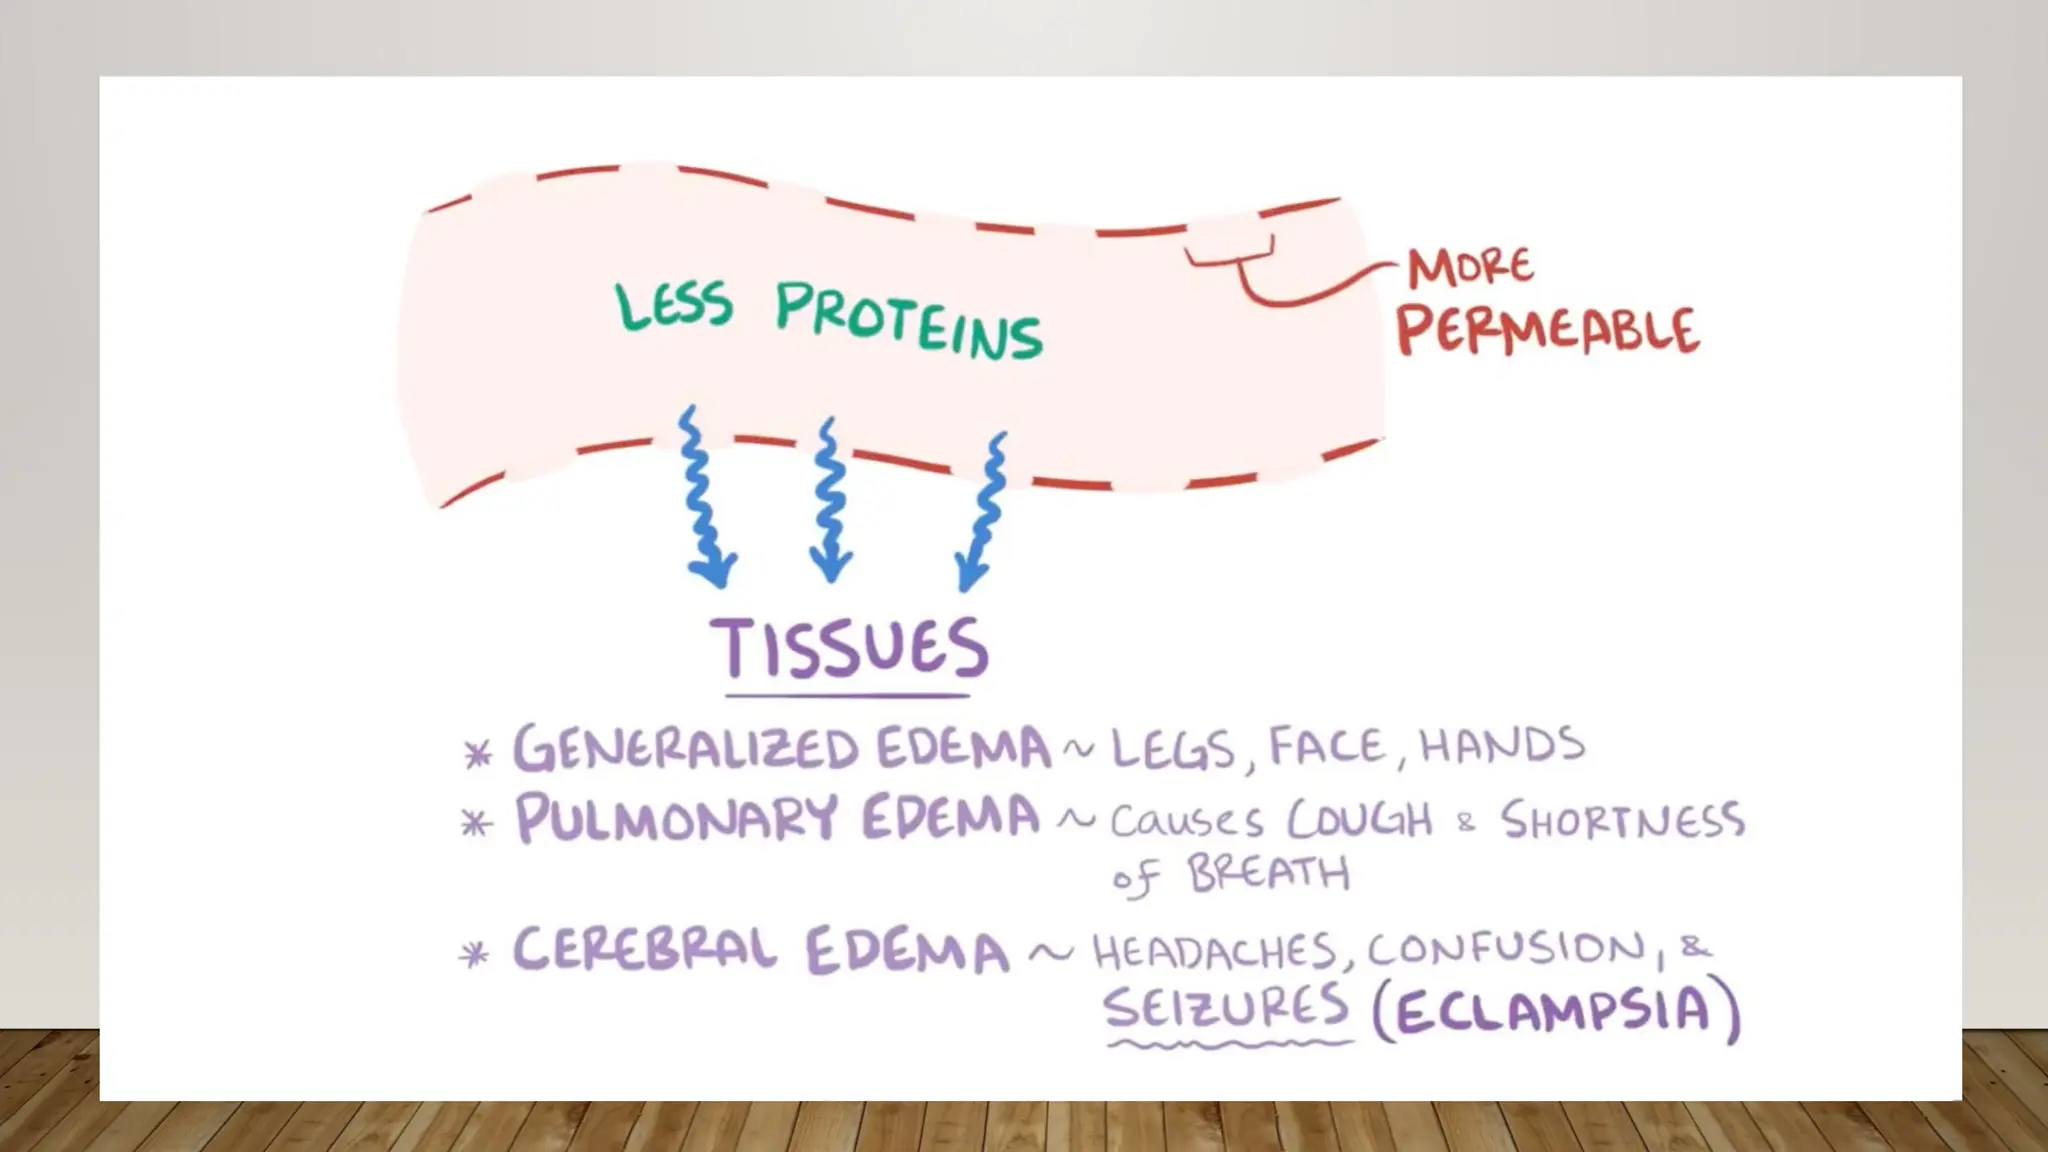 LESS PROTEINS
MORE
PERMEABLE
TISSUES
* GENERALIZED EDEMA ~ LEGS, FACE, HANDS
* PULMONARY EDEMA ~ Causes COUGH & SHORTNESS
of BREATH
* CEREBRAL EDEMA ~ HEADACHES, CONFUSION, &
SEIZURES (ECLAMPSIA)